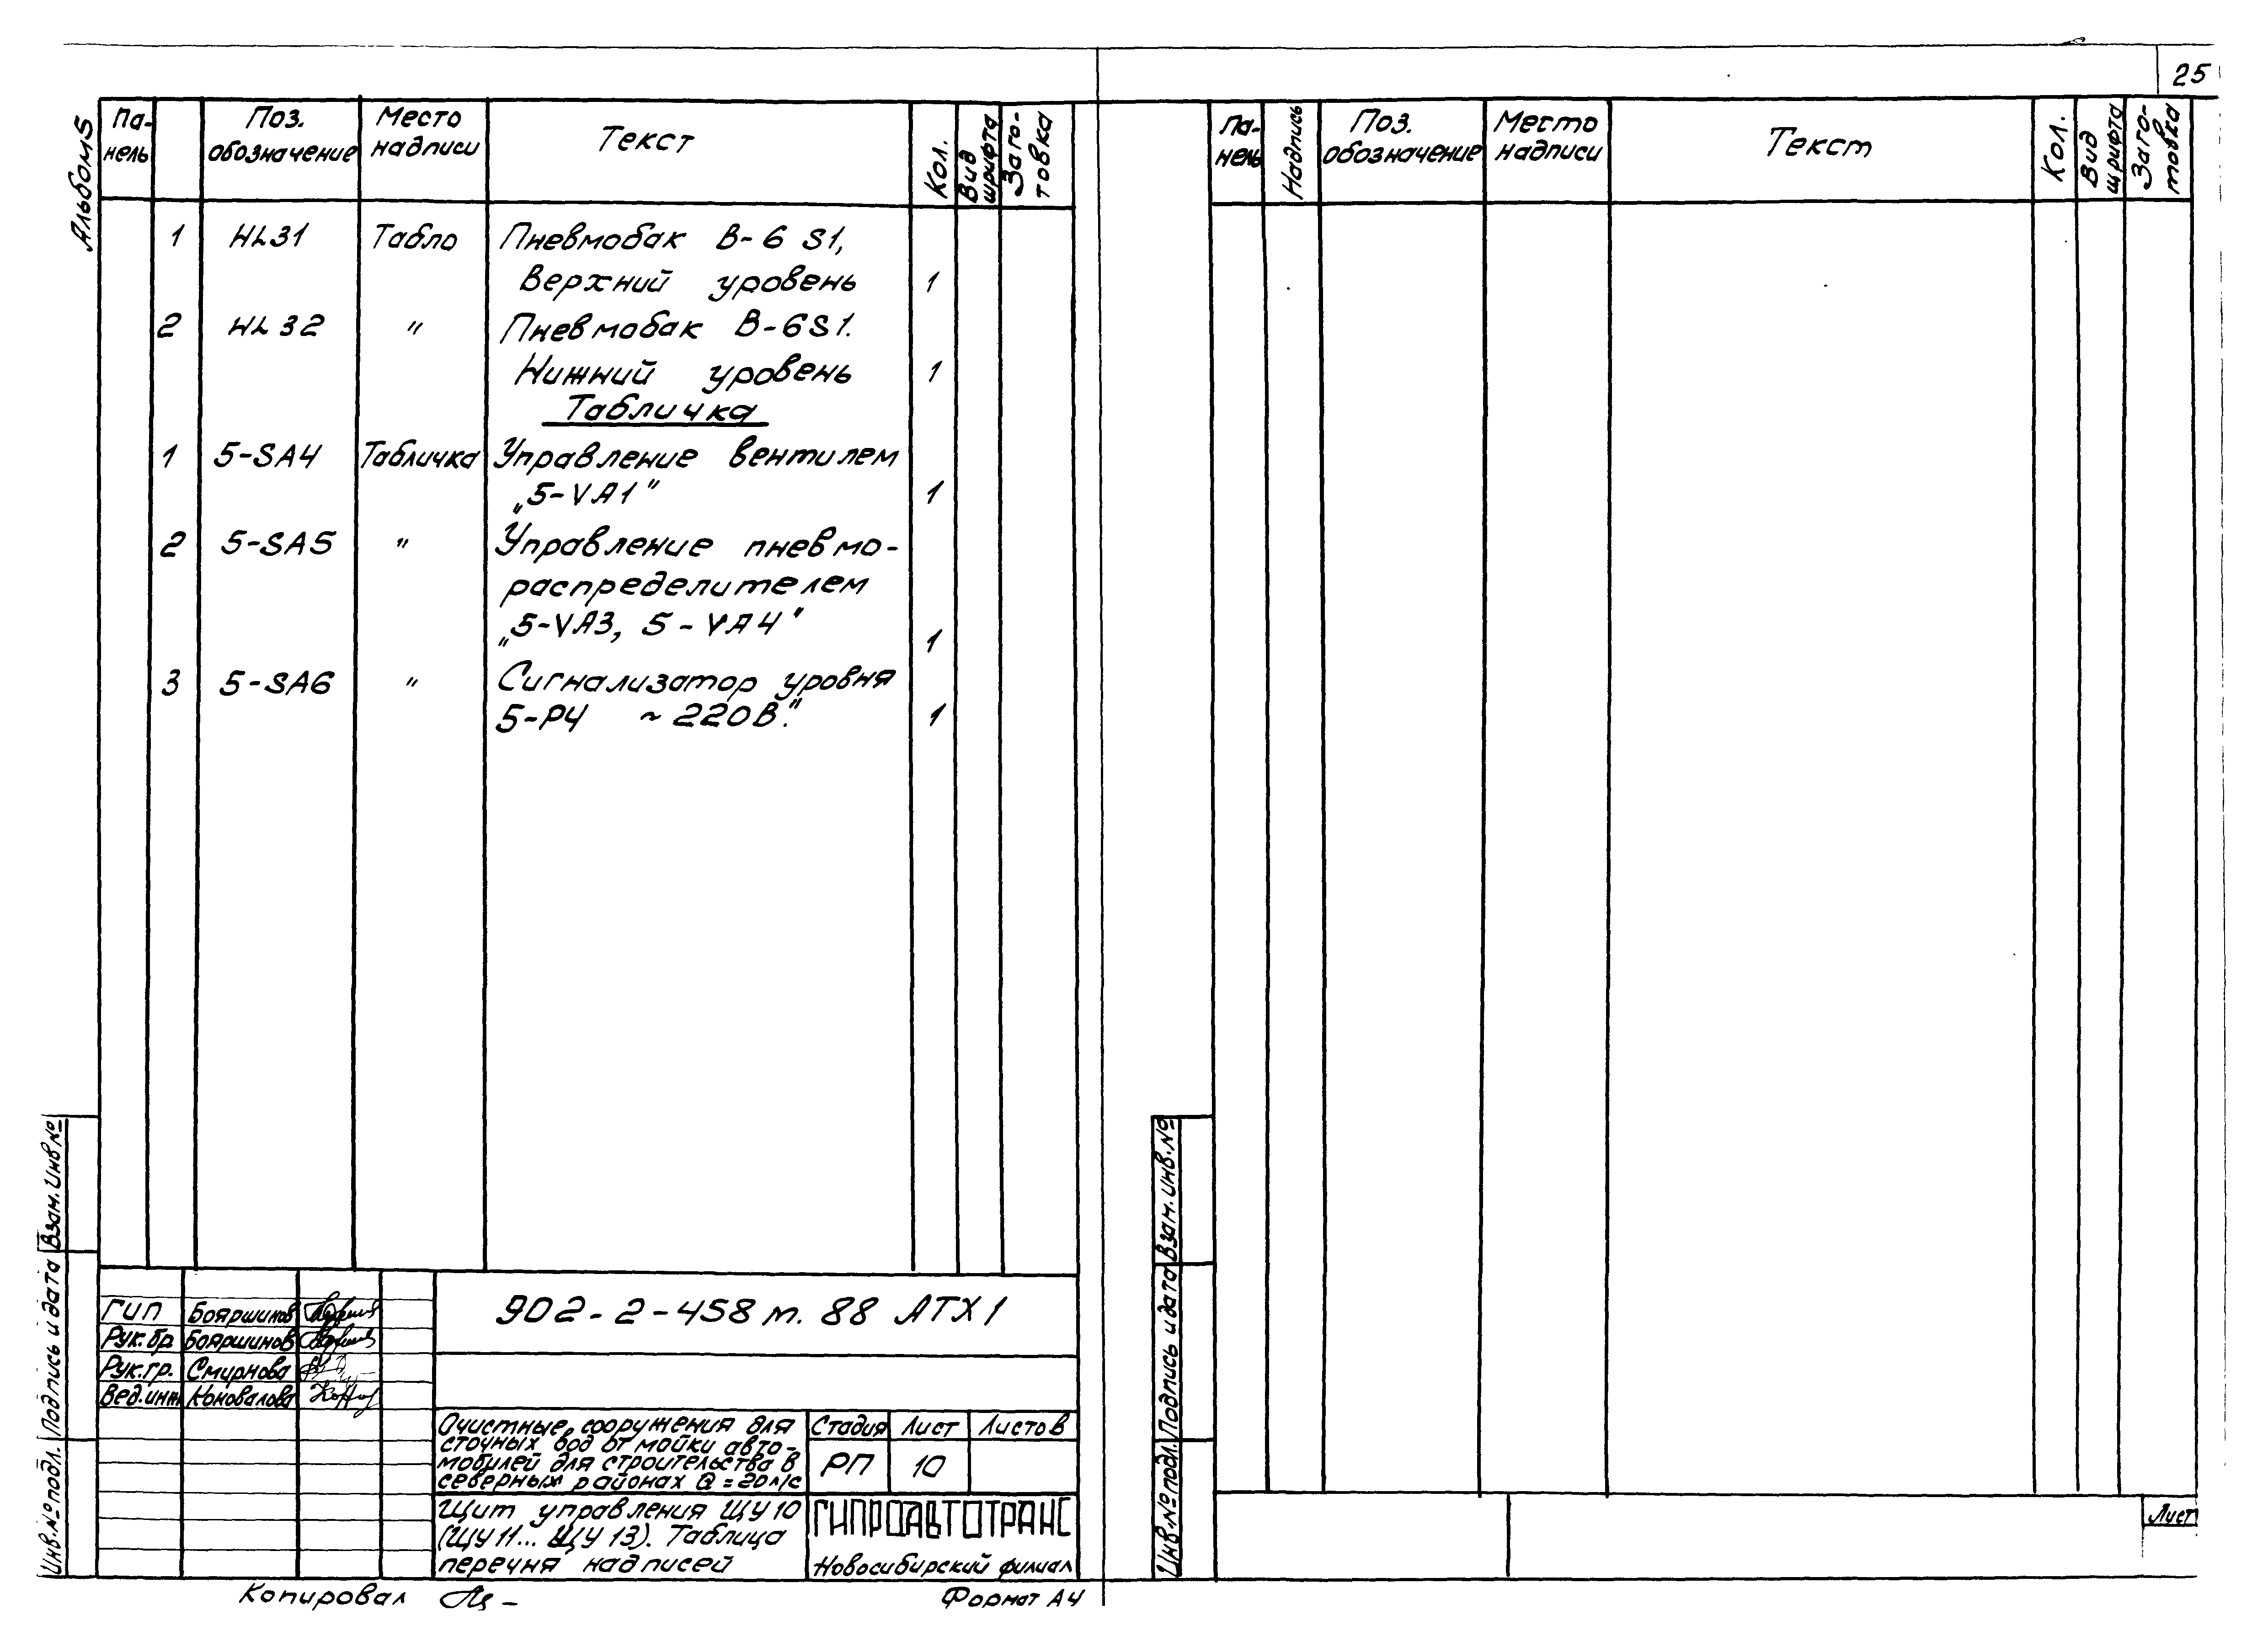 25
Альбом 5
Па-
нель
Поз.
обозначение
Место
надписи
Текст
Кол.
Вид
шрифта
Заго-
товка
1 HL31 Табло Пневмобак В-6 S1,
Верхний уровень 1
2 HL32 " Пневмобак В-6S1.
Нижний уровень 1
Табличка
1 5-SA4 Табличка Управление вентилем
„5-VA1" 1
2 5-SA5 " Управление пневмо-
распределителем
„5-VA3, 5-VA4" 1
3 5-SA6 " Сигнализатор уровня
5-P4 ~ 220В." 1
Взам. инв №
Подпись и дата
Инв. № подл.
ГИП Бояршинов
Рук. бр Бояршинов
Рук. гр. Смирнова
Вед. инж Коновалова
902-2-458 м. 88 АТХ1
Очистные сооружения для
сточных вод от мойки авто-
мобилей для строительства в
северных районах Q = 20 л/с
Стадия Лист Листов
РП 10
Щит управления ЩУ 10
(ЩУ 11... ЩУ 13). Таблица
перечня надписей
ГИПРОАВТОТРАНС
Новосибирский филиал
Копировал
Формат А4
Па-
нель
Надпись
Поз.
обозначение
Место
надписи
Текст
Кол.
Вид
шрифта
Заго-
товка
Взам. инв. №
Подпись и дата
Инв. № подл.
Лист